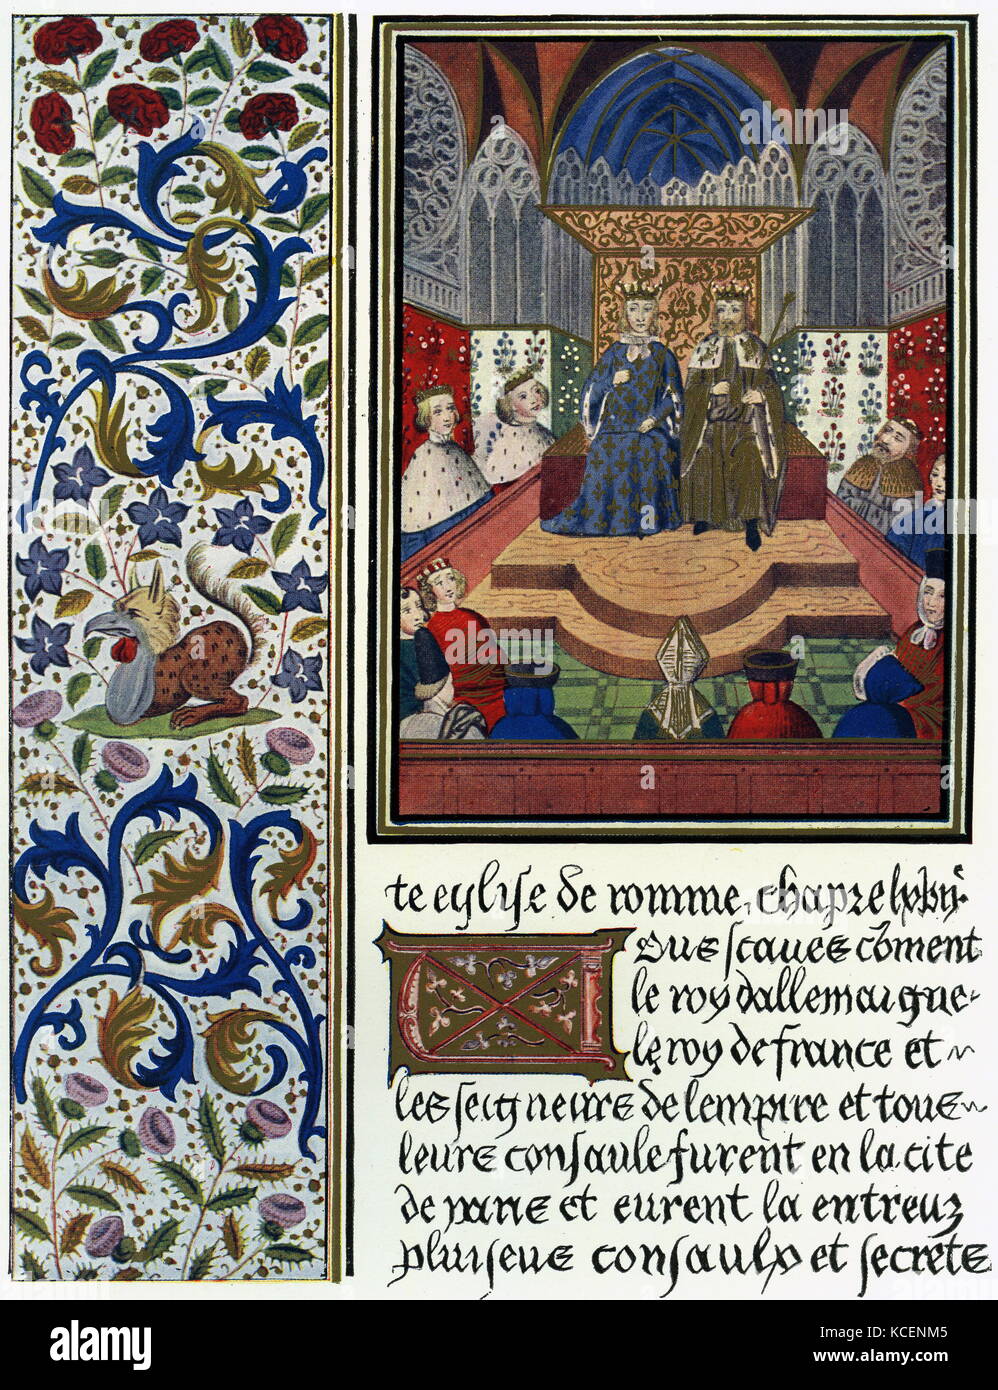 te eglise de romme. chapre lxbiij.
Vous scaues cõment
le roy dallemaigne
le roy de france et
les seigneurs de lempire et tous
leurs consaulx furent en la cite
de rains et eurent la entreulz
pluiseurs consaulx et secrete
alamy
Image ID: KCENM5
www.alamy.com